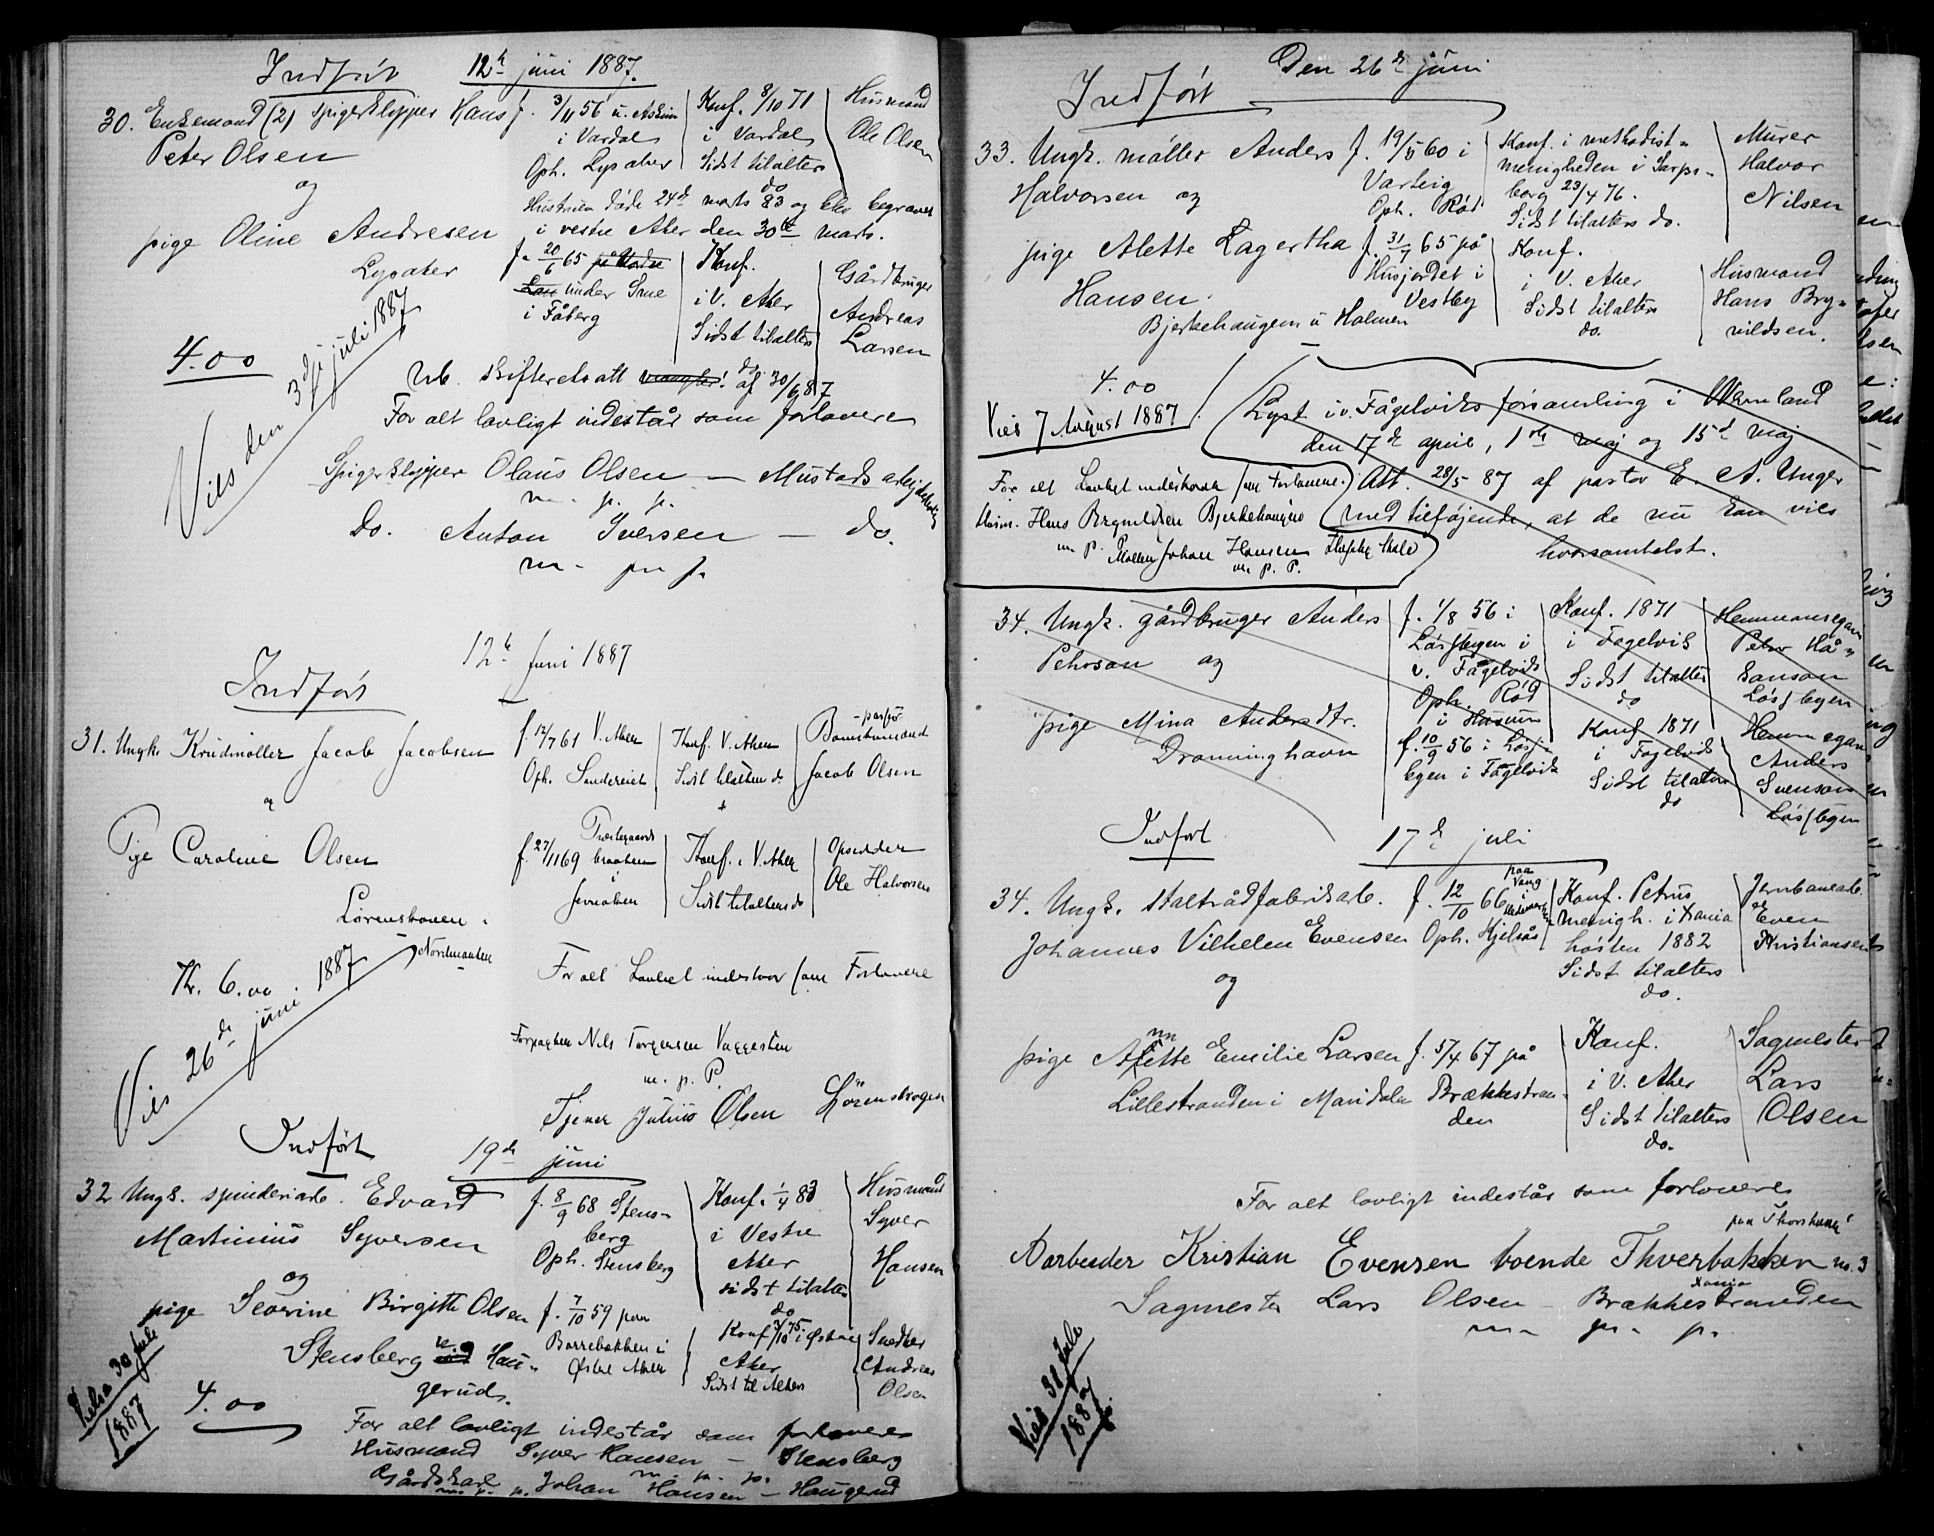 Indført 12te juni 1887.
30. Enkemand (2) spigerklipper Hans
Peter Olsen
og
pige Oline Andresen
Lysaker
f. 3/11 56 u. Askim
i Vardal
Oph. Lysaker
Konf. 8/10 71
i Vardal
Sidst tilalters
do
Husmand
Ole Olsen
Hustruen døde 24de marts 83 og blev begravet
i vestre Aker den 30te marts.
f. 20/6 65 på Nordre
Lau under Grue
i Fåberg
Konf.
i V. Aker
Sidst tilalters
do
Gårdbruger
Andreas
Larsen
4.00
Vies den 3die juli 1887
Nb. skifteretsatt. af 30/6 87
For alt lovligt indestår som forlovere
Spigerklipper Olaus Olsen — Mustads
m. p. p.
do. Anton Iversen — do.
m. p. p.
12te Juni 1887
Indført
31. Ungk. Krudmøller Jacob Jacobsen
Pige Caroline Olsen
Lørenskoven
f. 12/7 61 V. Aker
Oph.
Konf. V. Aker
Sidst tilalters do
Jacob Olsen
f. 27/11 69
Konf. i V. Aker
Sidst tilalters do
Opsidder
Ole Halvorsen
Kr. 6.00
Vies 26de juni 1887
Nordmanden
For alt Lovligt indestaar som Forlovere
Forpagter Nils Torgersen Vaggesten
m. p. P.
Tjener Julius Olsen Lörenskogen
Indført
19de juni
32 Ungk. spinderiarb. Edvard
Martinius Syversen
og
pige Severine Birgitte Olsen
Stensberg u. Hau-
gerud.
f. 8/9 68 Stens-
berg
Oph. Stensberg
Konf. 1/4 83
i Vestre
Aker
sidst tilalters
do
Husmand
Syver
Hansen
f. 7/10 59 paa
Borrebakken i
Østre Aker
Konf 3/10 75. i Østre
Aker
Sidst til Alters
Snedker
Andreas
Olsen
4.00
Viet 30 juli
1887
For alt lovligt indestår som forlovere
Husmand Syver Hansen — Stensberg
m. p. p.
Gårdskarl Johan Hansen — Haugerud
m. p. p.
Den 26de juni
Indført
33. Ungk. møller Anders
Halvorsen og
pige Alette Lagertha
Hansen.
Bjerkehaugen u Holmen
f. 19/5 60 i
Varteig
Oph. Rød
Konf. i methodist-
menigheden i Sarps-
borg 23/4 76.
Sidst tilalters do.
Murer
Halvor
Nilsen
f. 31/7 65 på
Husjordet i
Vestby
Konf.
i V. Aker
Sidst tilalters
do.
Husmand
Hans Bry-
nildsen.
4.00
Vies 7 August 1887
Lyst i v. Fågelviks församling i Wermland
den 17de april, 1ste maj og 15de maj
Att. 28/5 87 af pastor E. A. Unger
med tilføjende, at de nu kan vies
hvorsomhelst.
For alt Lovligt indestaar som Forlovere.
Husm. Hans Brynildsen Bjerkehaugen
m P.
Møller Johan Hansen
m. p. P.
34. Ungk. gårdbruger Anders
Petrson og
pige Mina Andersdtr.
Dronninghavn
f. 1/8 56 i
Løsfbegen i
v. Fågelvik
Oph. Rød
i Husum
Konf. 1871
i Fogelvik
Sidst tilalters
do
Hemmansegare
Petr Hå-
kanson
Løsfbegen
f. 10/9 56 i Løsf-
begen i Fågelvik
Konf 1871
i Fogelvik
Sidst tilalters
do
Hemmsegare
Anders
Svenson
Løsfbegen
Indført 17de juli
34. Ungk. Staltrådfabrikarb.
Johannes Vilhelm Evensen
og
pige Anette Emilie Larsen
Lillestranden i Maridalen
f. 12/10 66 paa Vang
Oph. Kjelsås
Konf. Petrus
menigh. i Xania
høsten 1882
Sidst tilalters
do.
Jernbanearb.
Even
Kristiansen
f. 5/4 67 på
Brækkestran-
den
Konf.
i V. Aker
Sidst tilalters
do.
Sagmester
Lars
Olsen
For alt lovligt indestår som forlovere
Aarbeider Kristian Evensen boende Thverbakken no. 3
Xania
Sagmester Lars Olsen — Brækkestranden
m. p. p.
Viet 31 Juli
1887